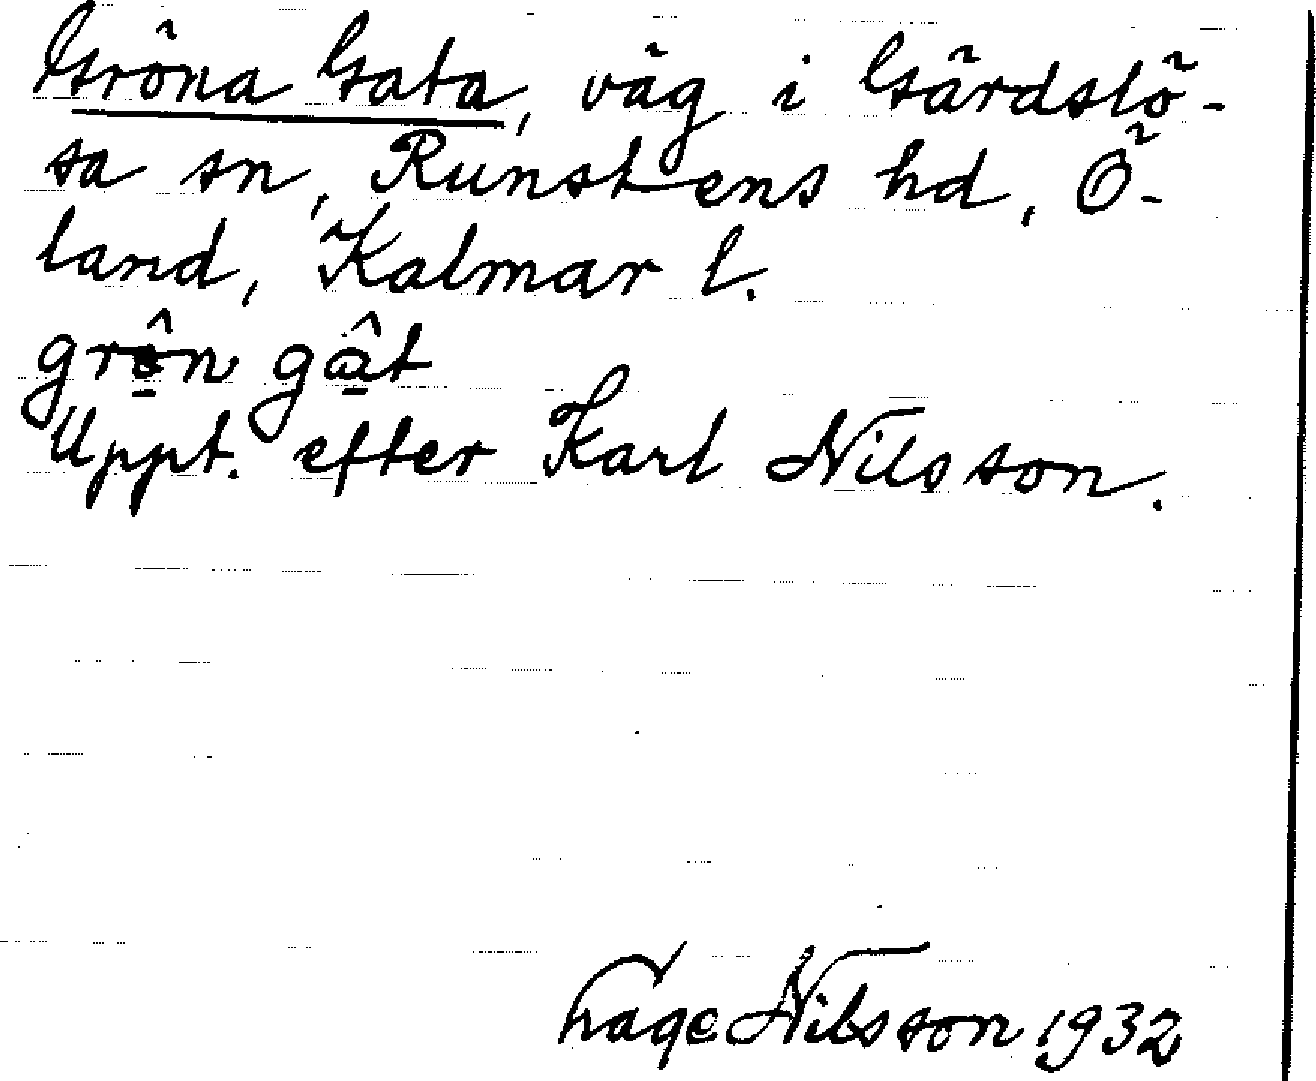 Gröna Gata, väg i Gärdslö-
sa sn, Runstens hd, Ö-
land, Kalmar l.
grø̂n gât
Uppt. efter Karl Nilsson.
Tage Nilsson 1932